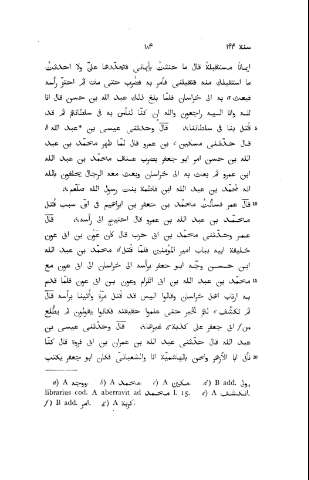 سنة ١۴۴ ١٨۴
ايمانا مستقبلة قال ما حنثت بأيمانى فتجدّدها علىّ ولا احدثت
ما استقيلك منه فتقيلنى فأمر به فضرب حتى مات ثم احتزّ رأسه
فبعث به الى خراسان فلما بلغ ذلك عبد الله بن حسن قال انا
لله وانا اليه راجعون والله ان كنّا لنأمن به فى سلطانهم ثم قد
٥ قُتل بنا فى سلطاننا، قال وحدثنى عيسى بن عبد الله
قال حدثنى مسكين بن عمرو قال لما ظهر محمد بن عبد
الله بن حسن امر ابو جعفر بضرب عنق محمد بن عبد الله
ابن عمرو ثم بعث به الى خراسان وبعث معه الرجال يحلفون بالله
انه محمد بن عبد الله ابن فاطمة بنت رسول الله صلعم،
١٠ قال عمر فسألت محمد بن جعفر بن ابراهيم فى اىّ سبب قُتل
محمد بن عبد الله بن عمرو قال احتيج الى رأسه، قال
عمر وحدثنى محمد بن ابى حرب قال كان عون بن ابى عون
خليفة ابيه بباب امير المؤمنين فلما قُتل محمد بن عبد الله
ابن حسن وجّه ابو جعفر برأسه الى خراسان الى ابى عون مع
١٥ محمد بن عبد الله بن ابى الكرام وعون بن ابى عون فلما قدم
به ارتاب اهل خراسان وقالوا اليس قد قُتل مرّة وأُتينا برأسه قال
ثم تكشّف لهم الخبر حتى علموا حقيقته فكانوا يقولون لم يُطّلع
من ابى جعفر على كذبة غيرها، قال وحدثنى عيسى بن
عبد الله قال حدثنى عبد الله بن عمران بن ابى فروة قال كنّا
٢٠ نأتى ابا الازهر ونحن بالهاشميّة انا والشعبانى فكان ابو جعفر يكتب
a) A ووجه. b) A محمد. c) A مكين. d) B add. ول.
librarius cod. A aberravit ad محمد l. 15. e) A انكشف.
f) B add. امر. g) A كربة.